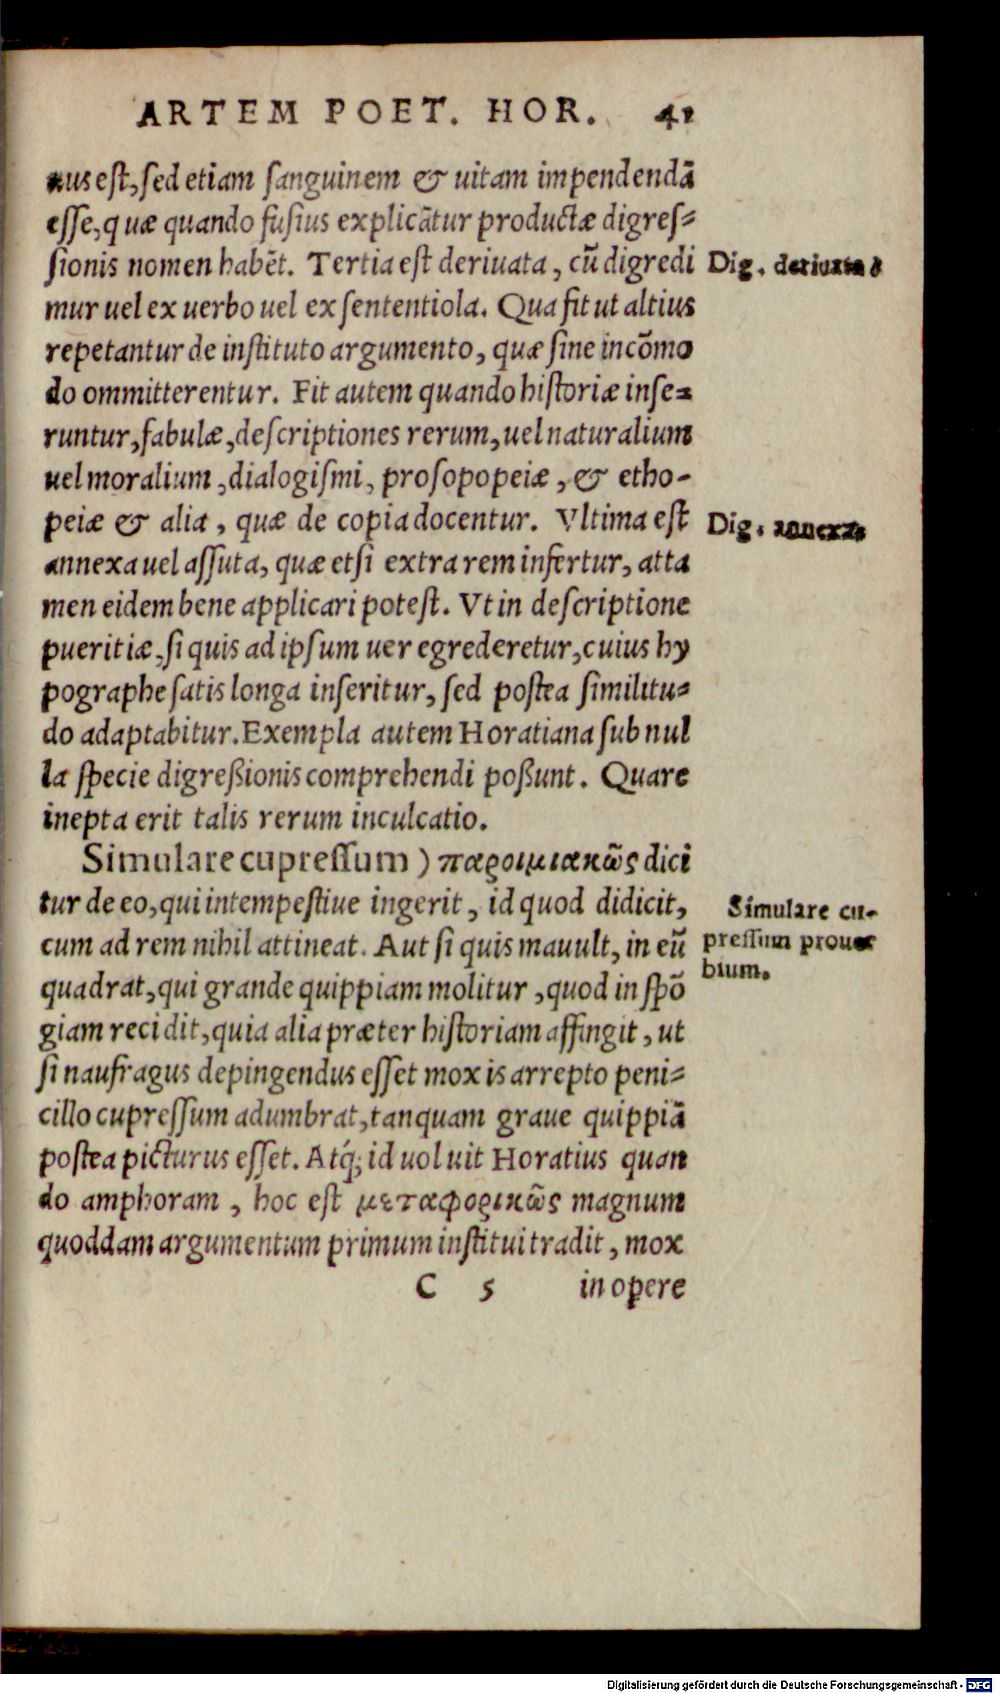 ARTEM POET. HOR. 41
nus est, sed etiam sanguinem & uitam impendendā
esse, quæ quando fusius explicātur productæ digres=
sionis nomen habēt. Tertia est deriuata, cū digredi
Dig. deriuata
mur uel ex uerbo uel ex sententiola. Qua fit ut altius
repetantur de instituto argumento, quæ sine incōmo
do ommitterentur. Fit autem quando historiæ inse=
runtur, fabulæ, descriptiones rerum, uel naturalium
uel moralium, dialogismi, prosopopeiæ, & etho-
peiæ & alia, quæ de copia docentur. Vltima est
Dig. annexa
annexa uel assuta, quæ etsi extra rem infertur, atta
men eidem bene applicari potest. Vt in descriptione
pueritiæ, si quis ad ipsum uer egrederetur, cuius hy
pographe satis longa inseritur, sed postea similitu=
do adaptabitur. Exempla autem Horatiana sub nul
la specie digreßionis comprehendi poßunt. Quare
inepta erit talis rerum inculcatio.
Simulare cupressum) παροιμιακῶς dici
tur de eo, qui intempestiue ingerit, id quod didicit,
Simulare cu-
cum ad rem nihil attineat. Aut si quis mauult, in eū
pressum prouer
quadrat, qui grande quippiam molitur, quod in spō
bium.
giam recidit, quia alia præter historiam affingit, ut
si naufragus depingendus esset mox is arrepto peni=
cillo cupressum adumbrat, tanquam graue quippiā
postea picturus esset. Atq́; id uoluit Horatius quan
do amphoram, hoc est μεταφορικῶς magnum
quoddam argumentum primum institui tradit, mox
C 5 in opere
Digitalisierung gefördert durch die Deutsche Forschungsgemeinschaft - DFG